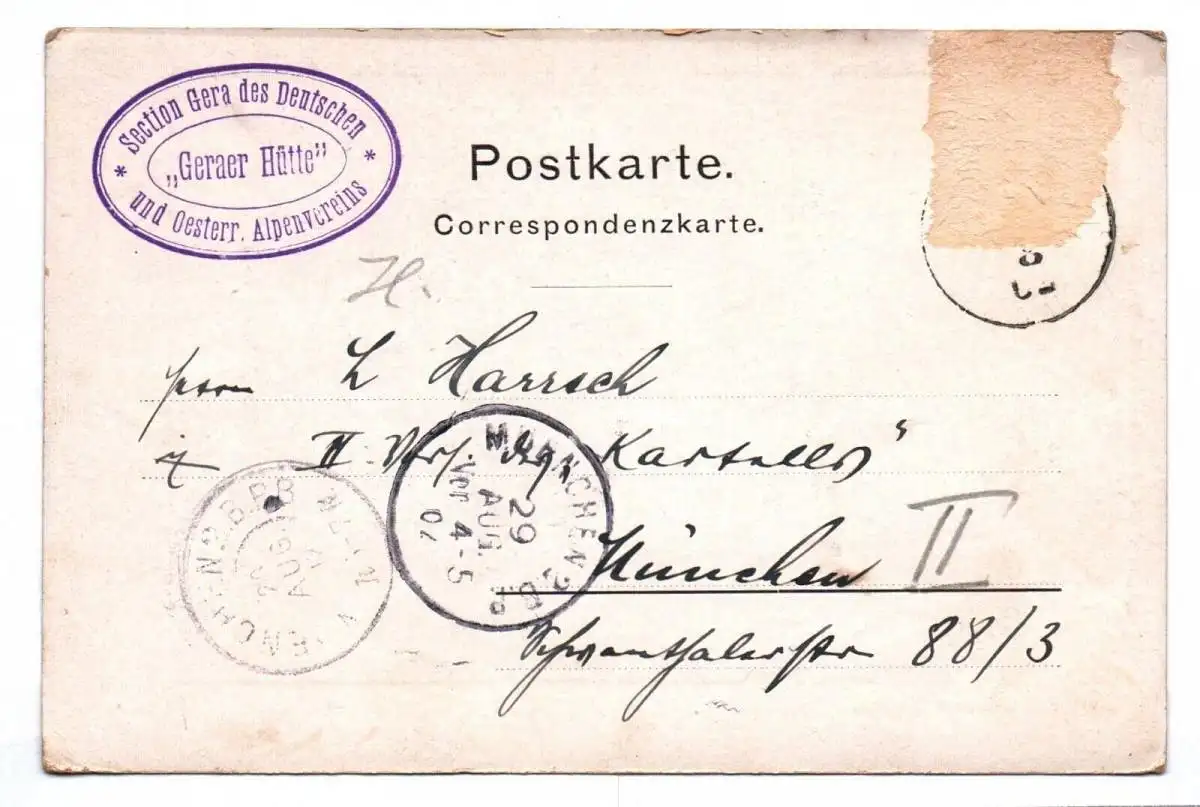 * Section Gera des Deutschen *
„Geraer Hütte"
und Oesterr. Alpenvereins
Postkarte.
Correspondenzkarte.
H.
Herrn L Harrsch
II. Vors. "Kartells"
München II
Schwanthalerstr 88/3
MUENCHEN 2
29
AUG.
Vor. 4-5
MUENCHEN.2.B.P.
AUG